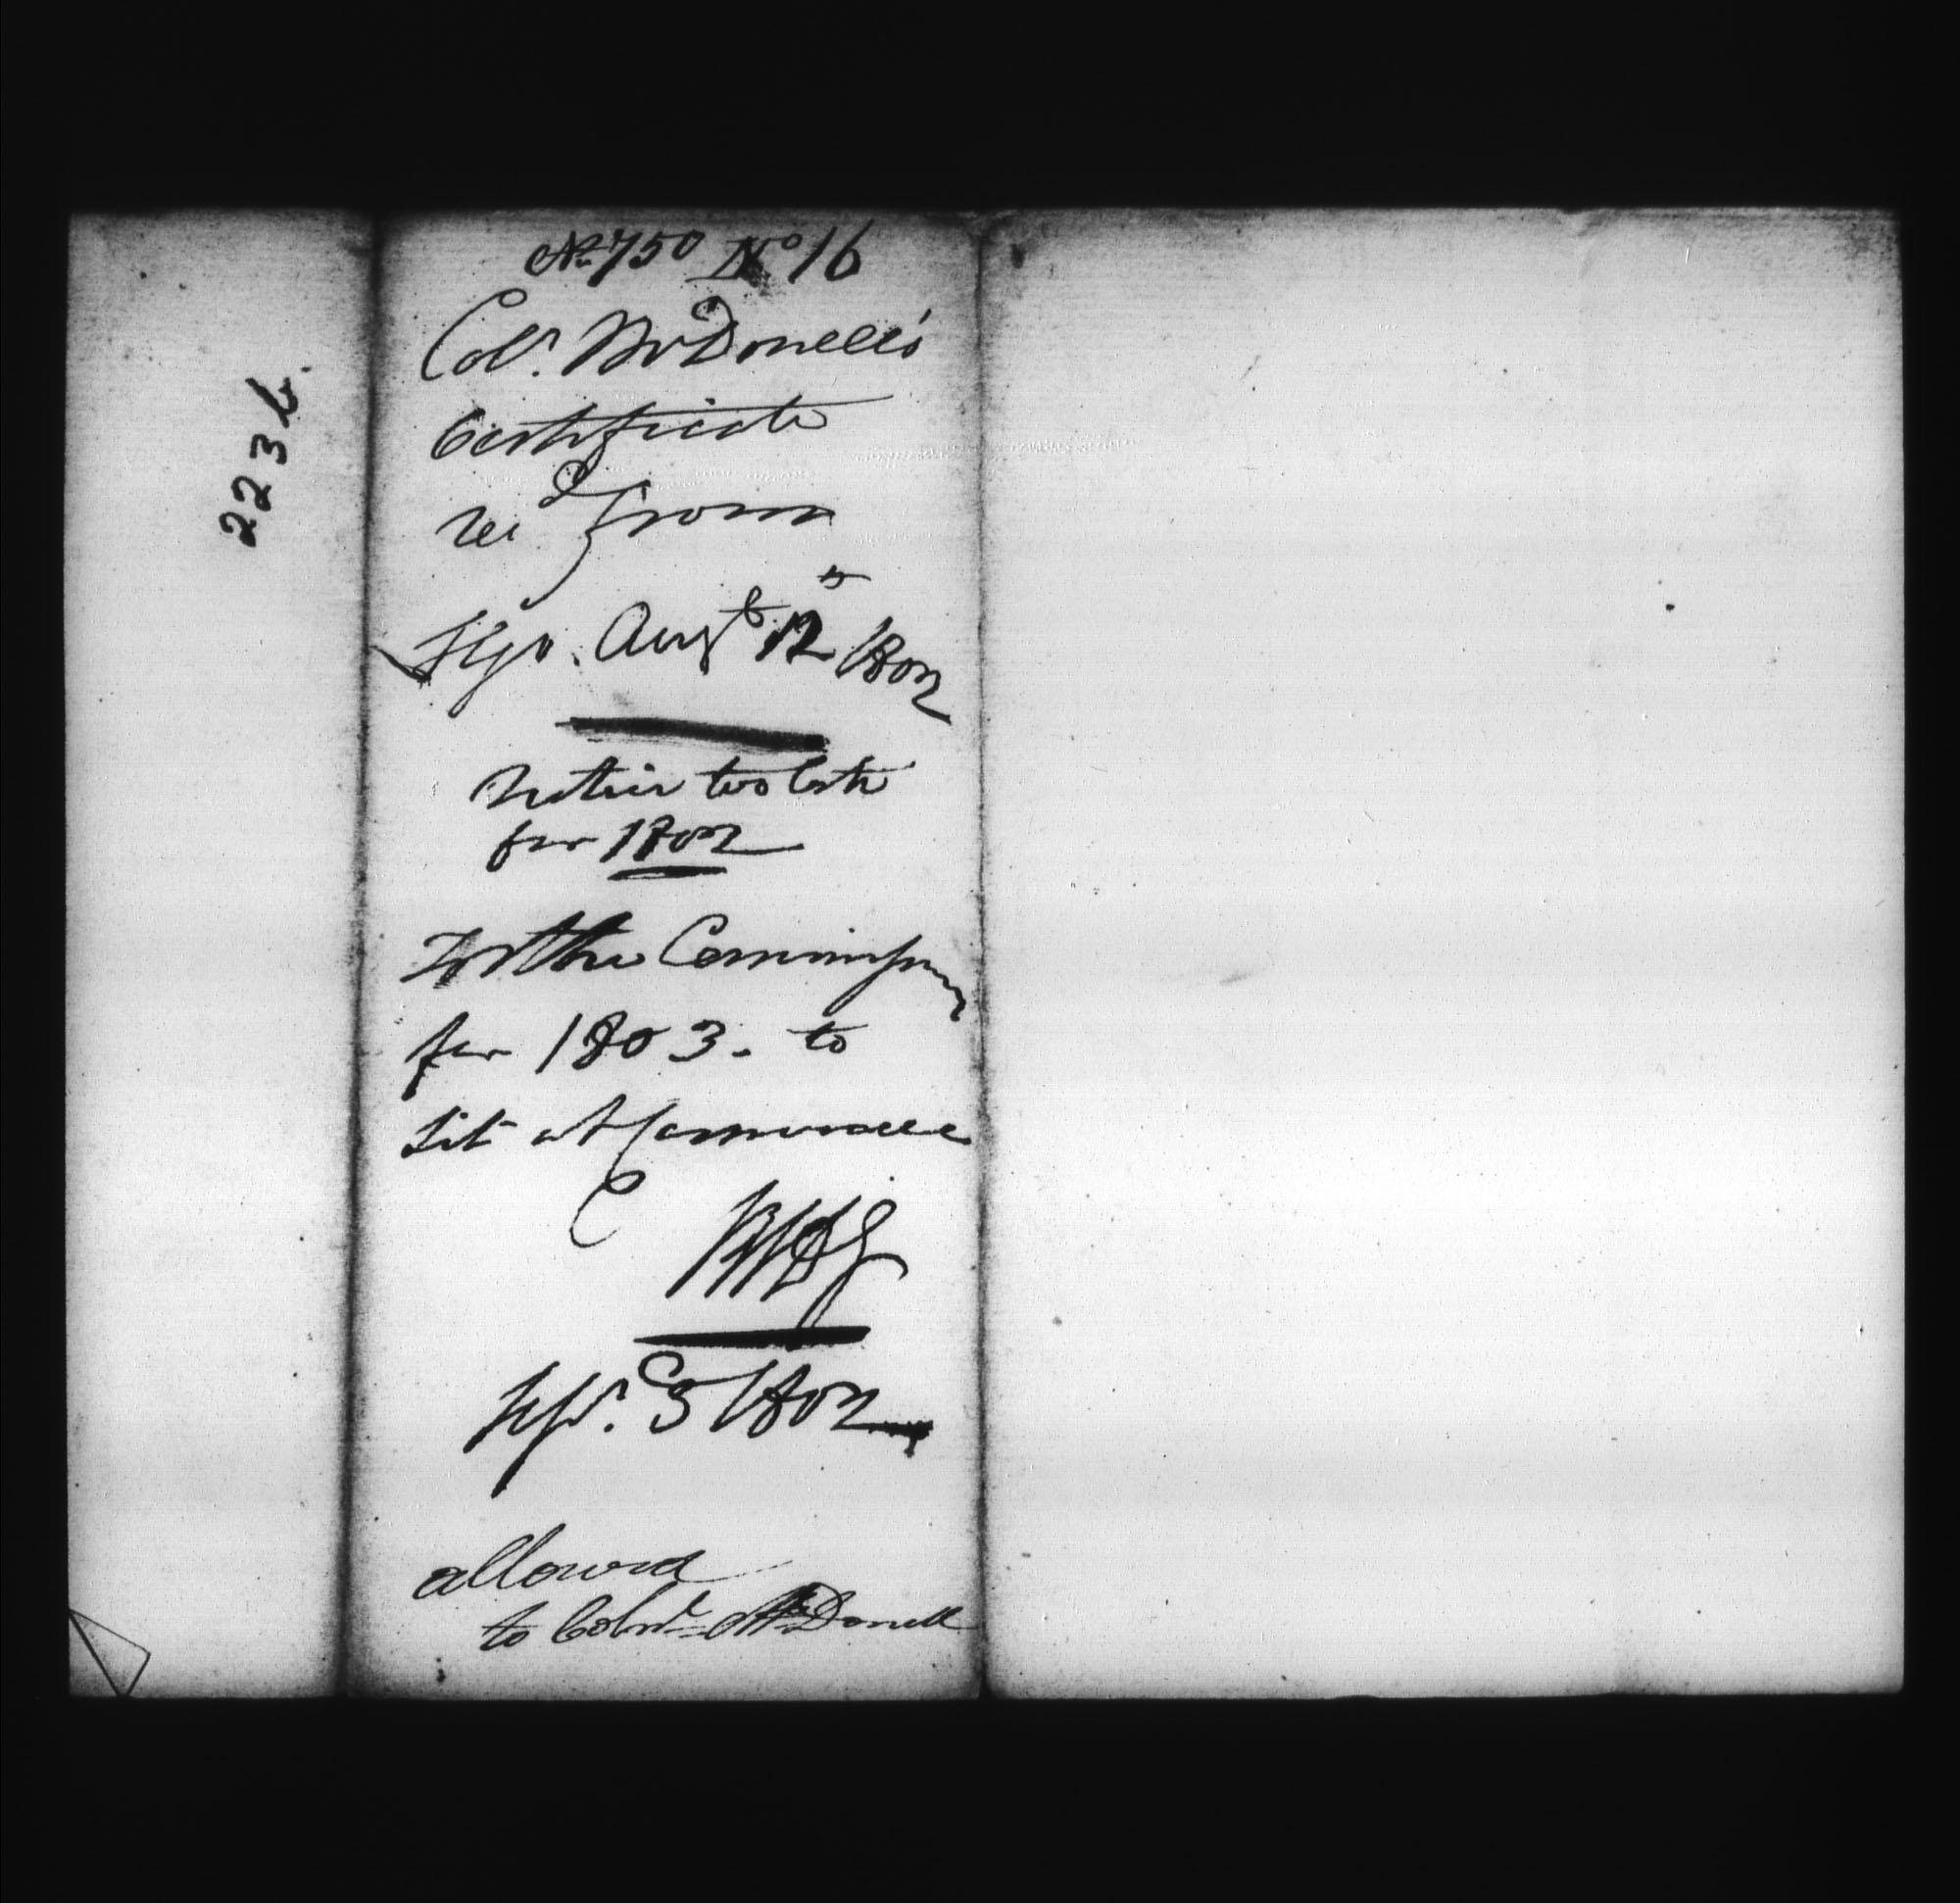 223 b.
No 750 No 16
Col. McDonell's
Certificate
recd from
Augt 12th 1802
Notice too late
for 1802
For the Commission
for 1803. to
sit at Cornwall
Sepr. 3 1802
allowed
to Coln McDonell